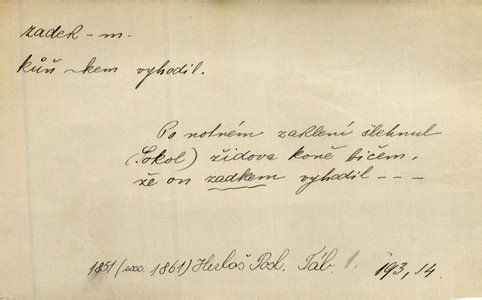 zadek – m.
kůň ~kem vyhodil.
Po notném zaklení šlehnul
(Sokol) židova koně bičem,
že on zadkem vyhodil – – –
1851 (exc. 1861) Herloš Posl. Táb 1. 193, 14.